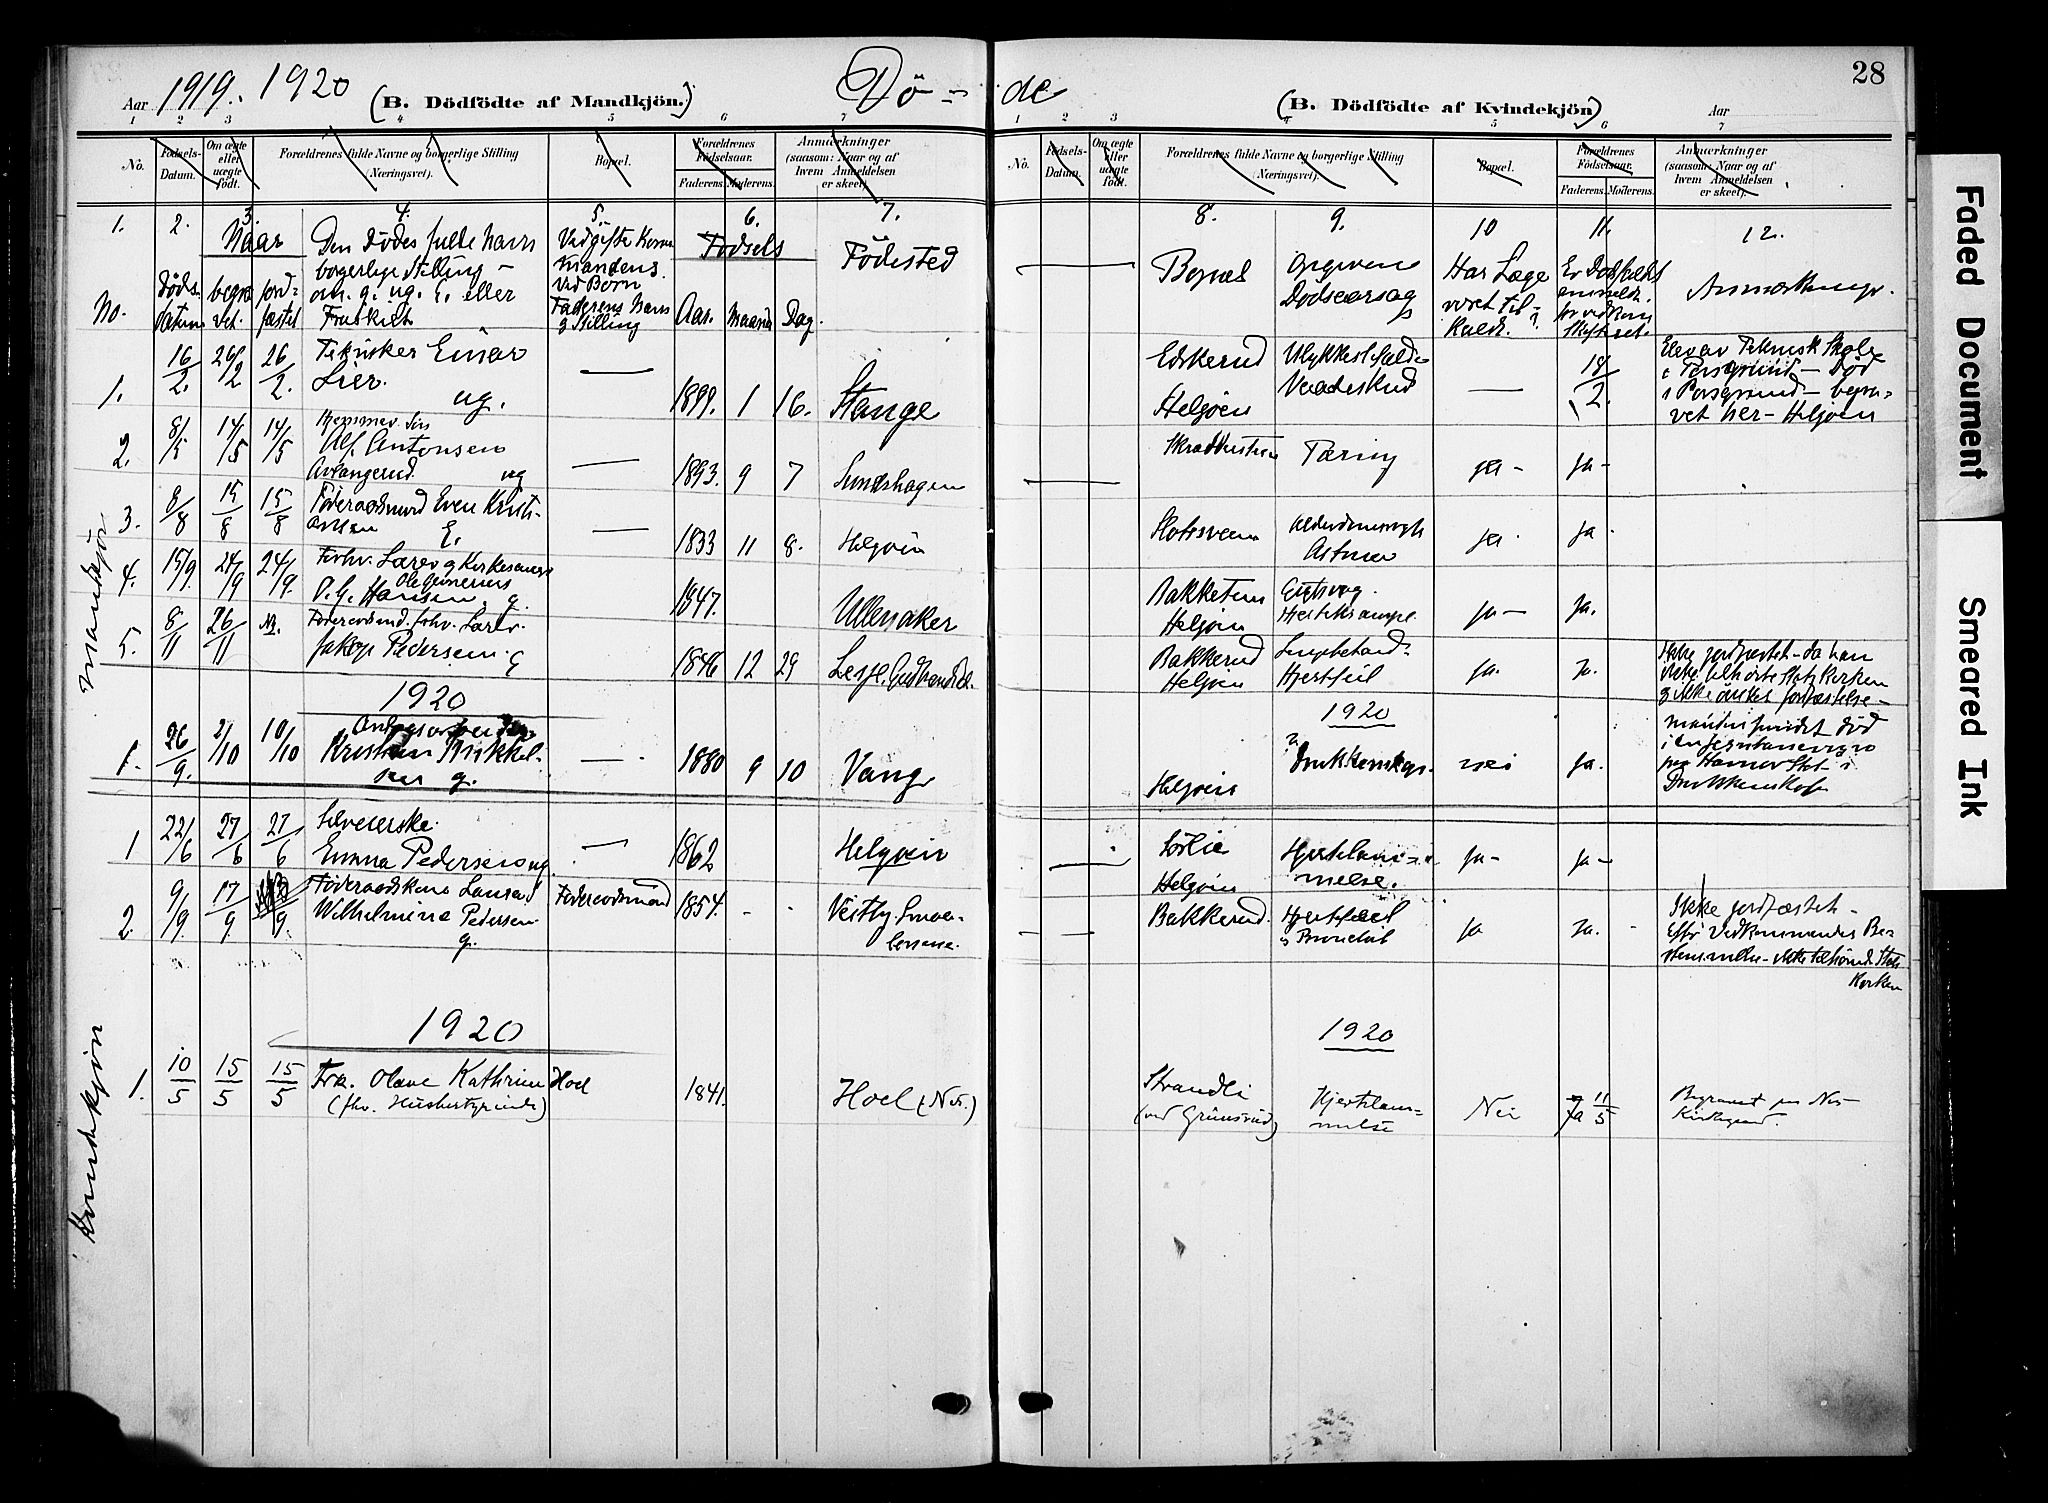 28
Aar 1919. 1920 (B. Dödfödte af Mandkjön.) Dö- de (B. Dödfödte af Kvindekjön) Aar
1 2 3 4 5 6 7
1 2 3 4 5 6 7
No. Fødsels-Datum. Om ægte eller uægte født. Forældrenes fulde Navne og borgerlige Stilling (Næringsvei). Bopæl. Forældrenes Fødselsaar. Faderens. Moderens. Anmærkninger (saasom: Naar og af hvem Anmeldelsen er skeet).
No. Fødsels-Datum. Om ægte eller uægte født. Forældrenes fulde Navne og borgerlige Stilling (Næringsvei). Bopæl. Forældrenes Fødselsaar. Faderens. Moderens. Anmærkninger (saasom: Naar og af hvem Anmeldelsen er skeet).
1. 2. 3. 4. 5. 6. 7. 8. 9. 10 11. 12.
No. Døds-datum Naar begra-vet. jord-fæstet
Den Dødes fulde navn
borgerlige Stilling -
om. g. ug. E. eller
Fraskilt
Ved gifte Kone
Mandens
Ved Børn
Faderens Navn
og Stilling
Fødsels
Aar. Maaned Dag.
Fødested
Bopæl
Opgiven
Dødsaarsag
Har Læge
været til-
kaldt.
Er Dødsfaldet
anmeldt
Anmerkninger.
Mandkjøn
1. 16/2. 26/2 26/2. Tekniker Einar
Lier. ug. 1899. 1 16. Stange
Helgøen Vaadeskud 18/2.
Elev av Teknisk Skole
i Porsgrund - Død
i Porsgrund - begra-
vet her - Helgøen
2. 8/5 14/5 14/5
Alf. Antonsen
ug 1893. 9 7
Tæring ja - ja -
3. 8/8 15/8 15/8 Føderaadsmand Even Kristi-
ansen E. 1833 11 8. Helgøen
ja. ja.
4. 15/9. 24/9 24/9. Forhv. Lærer og Kirkesanger
O. G. Hansen. g. 1847. Ullensaker
Helgøen ja - ja.
5. 8/11 26/11 Føderaadsmd. forhv. Lærer.
Jakop Pedersen. g 1846 12 29 Lesje. Gudbrandsdal.
Bakkerud
Helgøen Hjertfeil ja. ja.
Ikke jordfæstet - da han
ikke tilhørte Statskirken
og ikke ønsket jordfæstelse -
1920
1920
1. 26/9. 2/10 10/10
Kristian Mikkel-
sen g. 1880 9 10 Vang
Helgøen Drukkenskap. nei ja.
Manden fundet død
paa Hamar Stat- i
Drukkenskap
Kvindekjøn
1 22/6 27/6 27/6
Emma Pedersen ug. 1862 Helgøen
Sørlie
Helgøen Hjertelam-
melse. ja - ja -
2. 9/9. 17/9. Føderaadskone Laura
Wilhelmine Pedersen
g. Føderaadsmand 1854. Vestby Smaa-
lenene.
Bakkerud. Hjertfeil
og Bronchit ja ja.
Ikke jordfæstet -
efter Vedkommendes Be-
stemmelse - ikke tilhørende Stats
Kirken
1920
1920
1. 10/5 15/5 15/5 Frk. Olave Kathrine Hoel
(fhv. Husbestyrinde) 1841. Hoel (Nes.)
Strandli
(ved Grimsrud) Hjertelam-
melse Nei Ja 11/5
Begravet paa Nes
Kirkegaard.
Faded Document
Smeared Ink